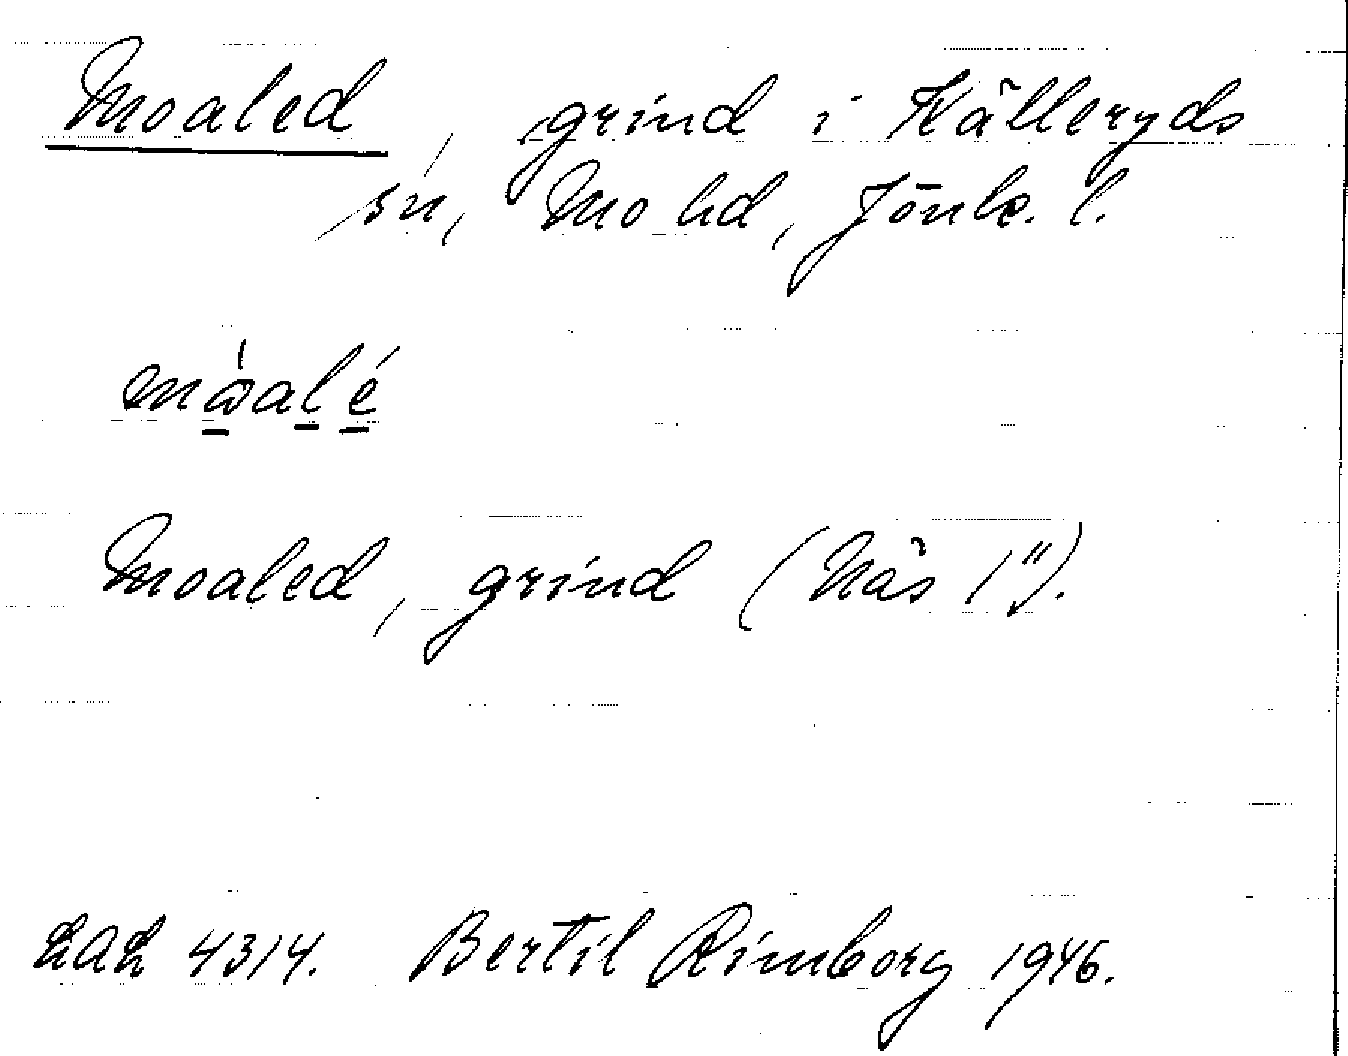 Moaled, grind i Källeryds
sn, Mo hd, Jönk. l.
mὼalé
Moaled, grind (Näs 1").
LAL 4314. Bertil Rimborg 1946.